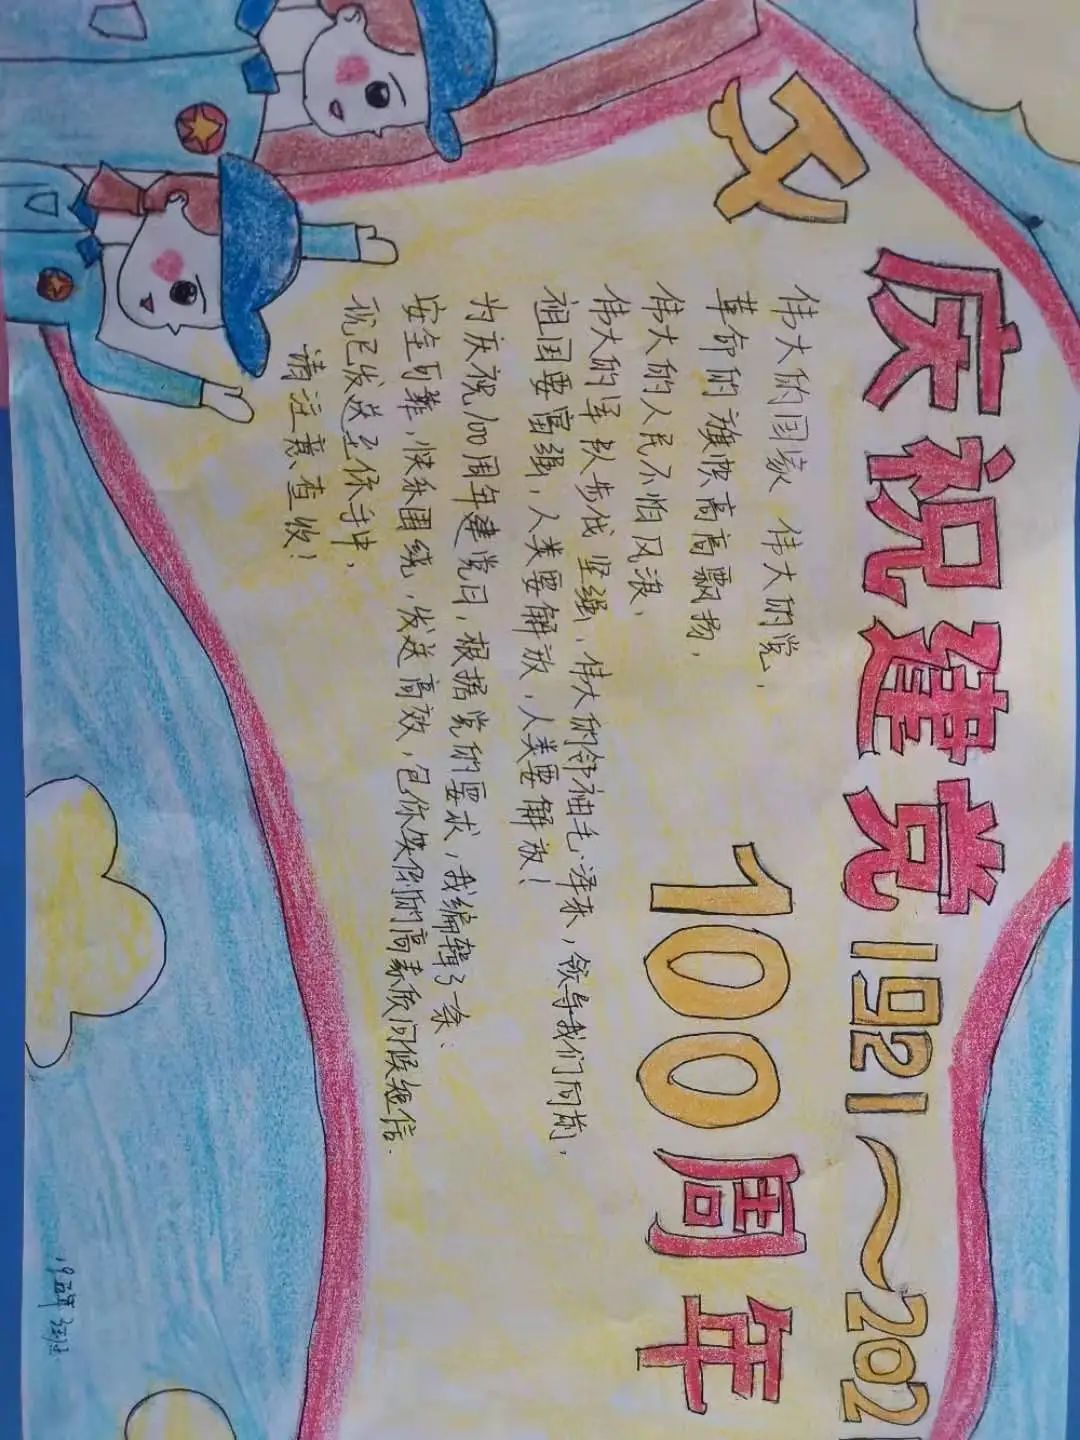 庆祝建党1921~202
100周年
伟大的国家 伟大的党，
革命的旗帜高高飘扬，
伟大的人民不怕风浪，
伟大的军队步伐坚强，伟大的领袖毛泽东，领导我们向前，
祖国要富强，人类要解放，人类要解放！
为庆祝100周年建党日，根据党的要求，我编辑了一条：
安全可靠，快乐围绕，发送高效，包你笑倒的高素质问候短信
现已发送至你手中，
请注意查收！